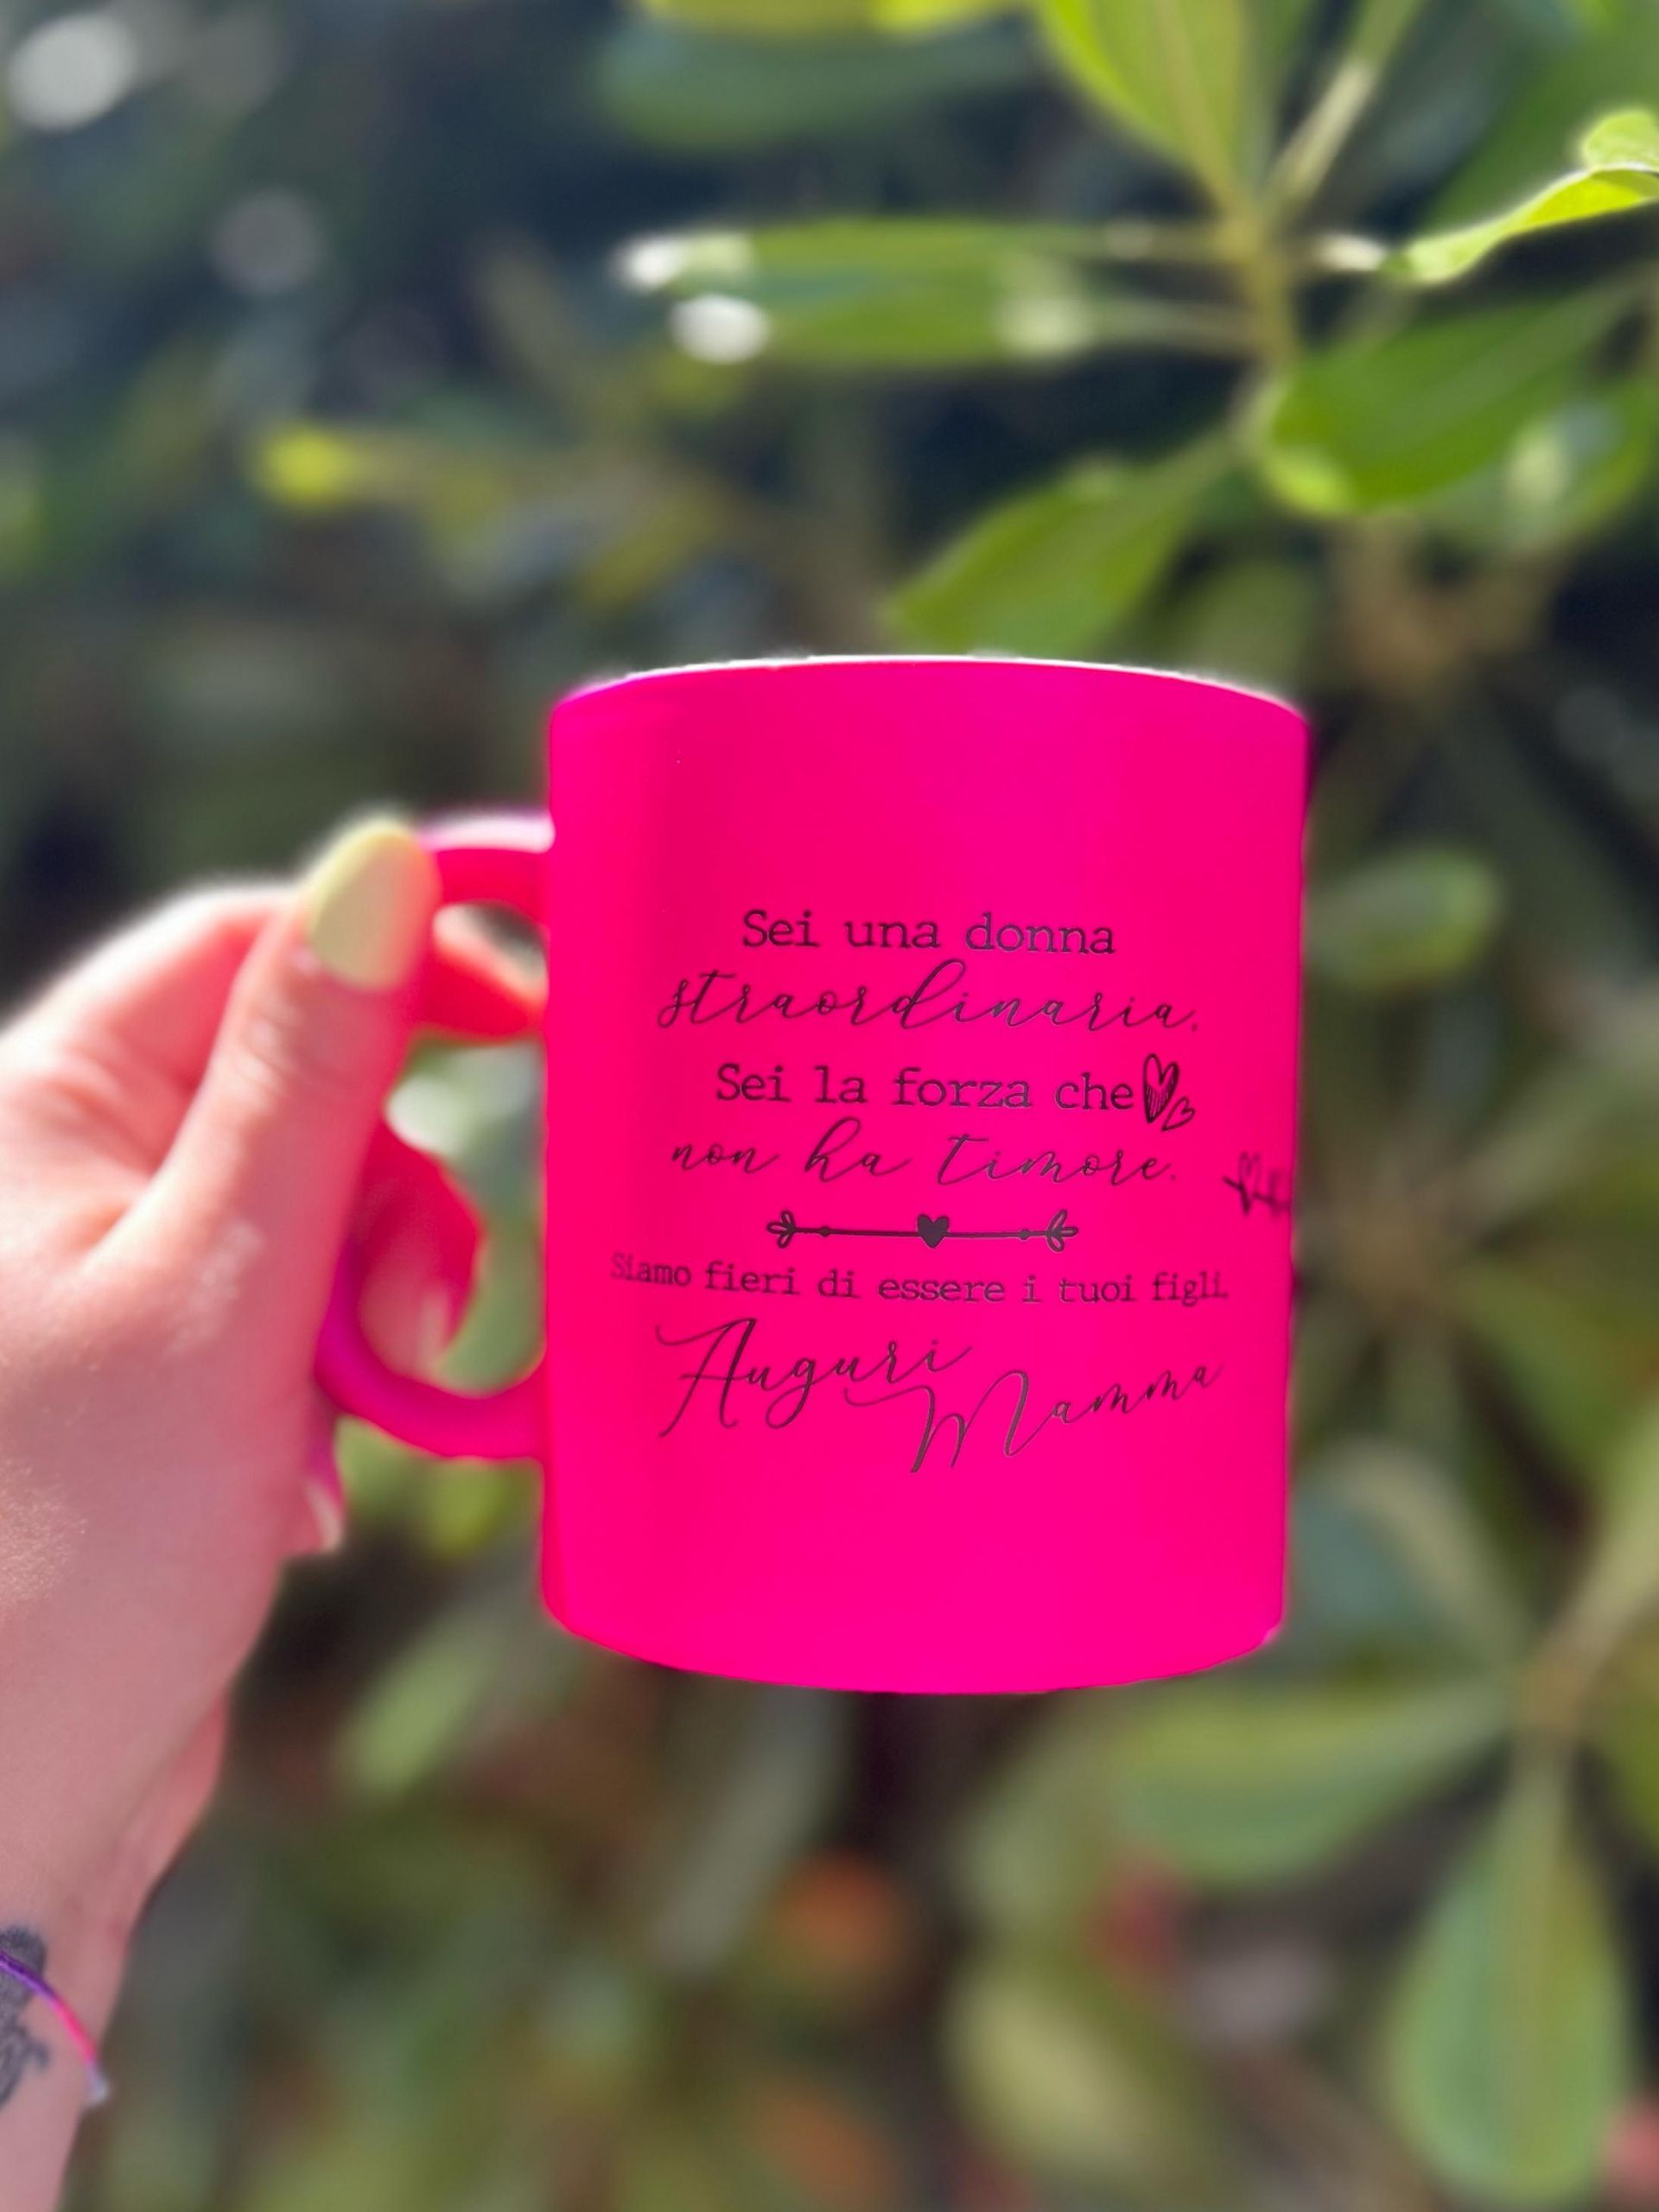 Sei una donna
straordinaria.
Sei la forza che
non ha timore.
Siamo fieri di essere i tuoi figli.
Auguri
Mamma